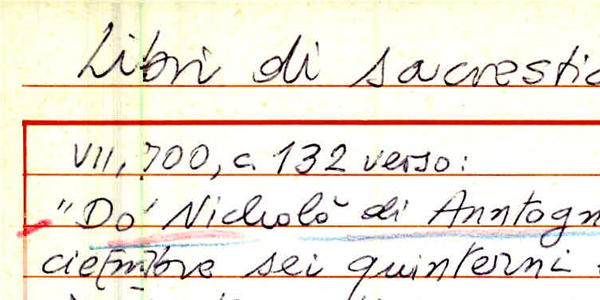 Libri di sacrestia
VII, 700, c. 132 verso:
"Do' Nicholò di Anntogn
cie[m]bre sei quinterni